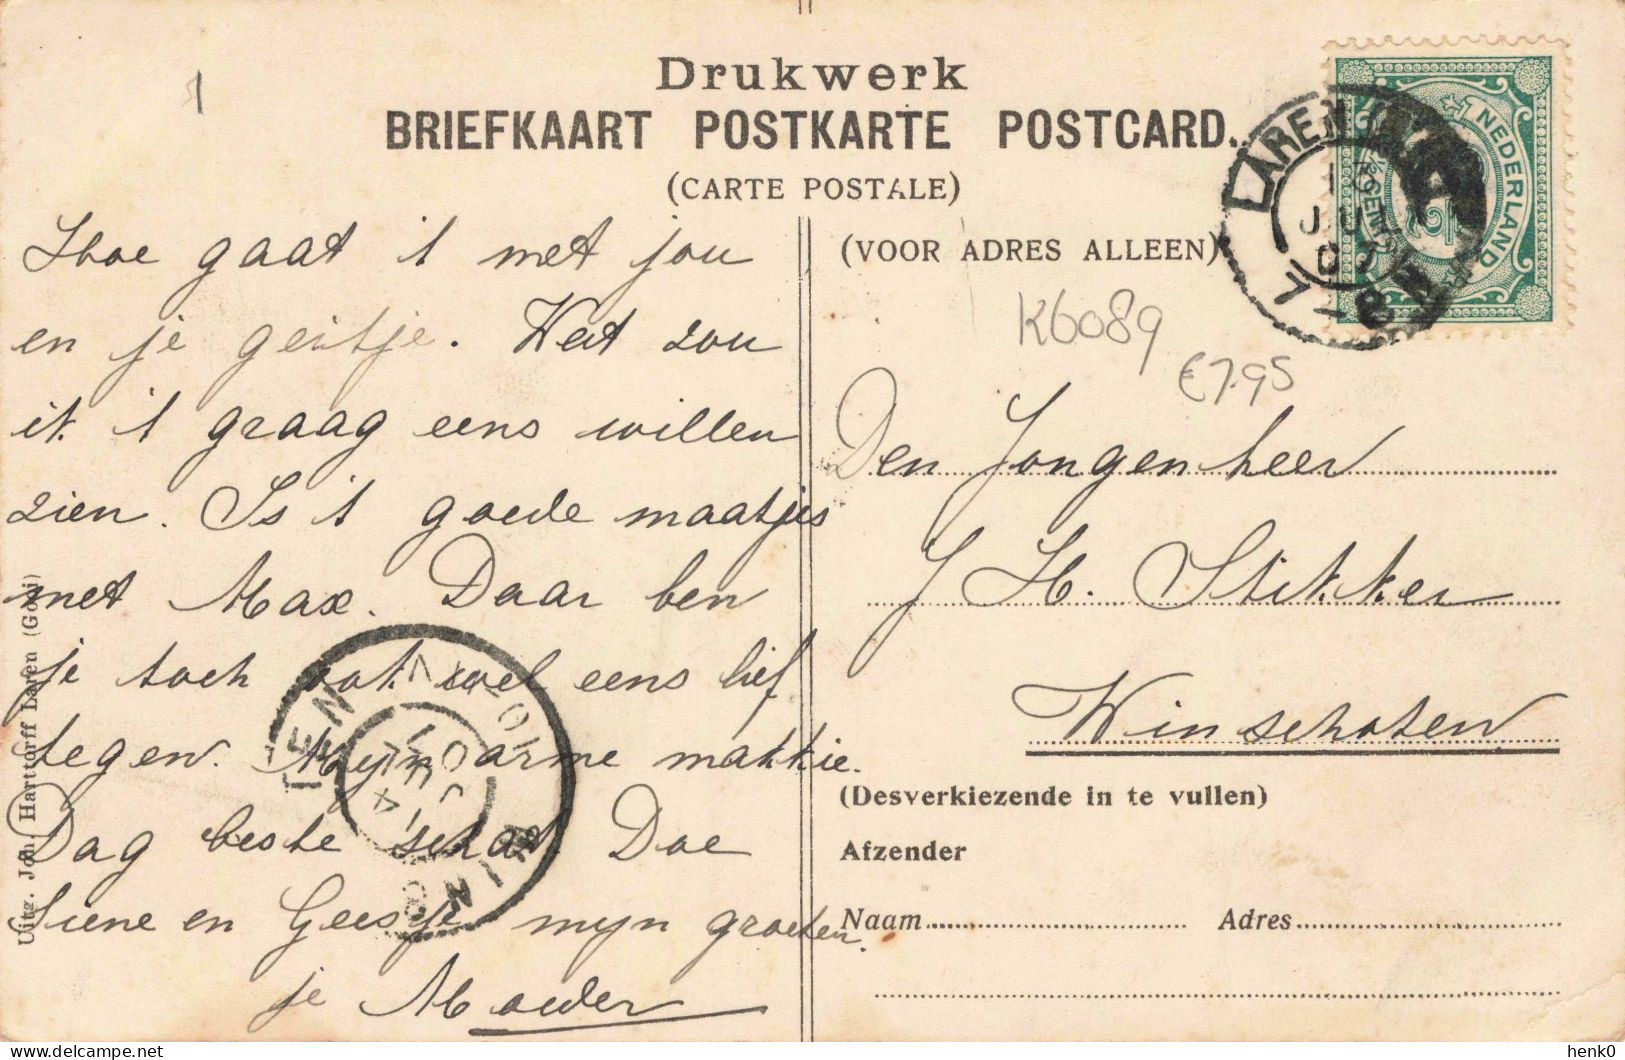 Drukwerk
BRIEFKAART POSTKARTE POSTCARD.
(CARTE POSTALE)
Hoe gaat 't met jou
en je geitje. Wat zou
ik 't graag eens willen
zien. Is 't goede maatjes
met Max. Daar ben
je toch ook wel eens lief
tegen. Mijn arme makkie.
Dag beste schat Doe
Siene en Geesje mijn groeten.
je Moeder
Uitg. Joh. Harttorff Laren (Gooi)
(VOOR ADRES ALLEEN)
K6089
€7.95
Den Jongenheer
J H. Stikker
Winschoten
(Desverkiezende in te vullen)
Afzender
Naam Adres
NEDERLAND
LAREN
7-8N
delcampe.net
henk0